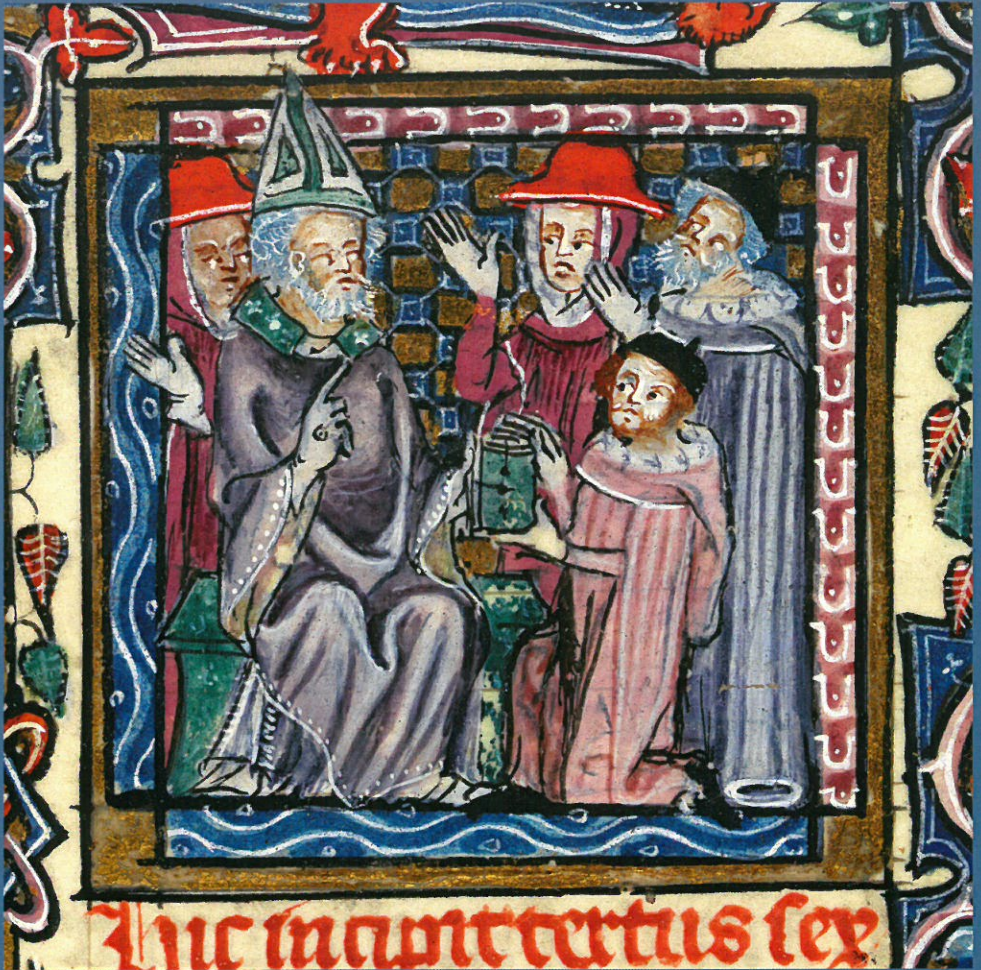 Hic incipit tertius sex